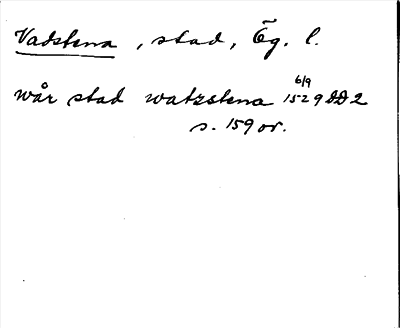 Vadstena, stad, Ög. l.
wår stad watzstena 6/9 1529 DD 2
s. 159 or.